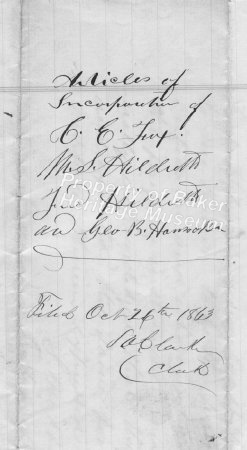 Articles of
Incorporation of
C. C. Fox.
M. S. Hildreth
J. L. Hildreth
and Geo B.
Property of Baker
Heritage Museum
Filed Oct 26th 1863
Clark
Clerk